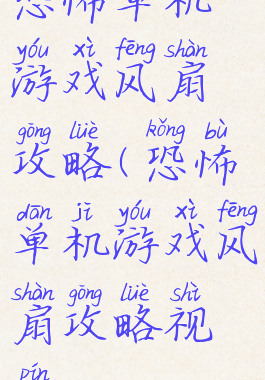 恐怖单机
yóu xì fēng shàn
游戏风扇
gōng lüè kǒng bù
攻略(恐怖
dān jī yóu xì fēng
单机游戏风
shàn gōng lüè shì
扇攻略视
pín